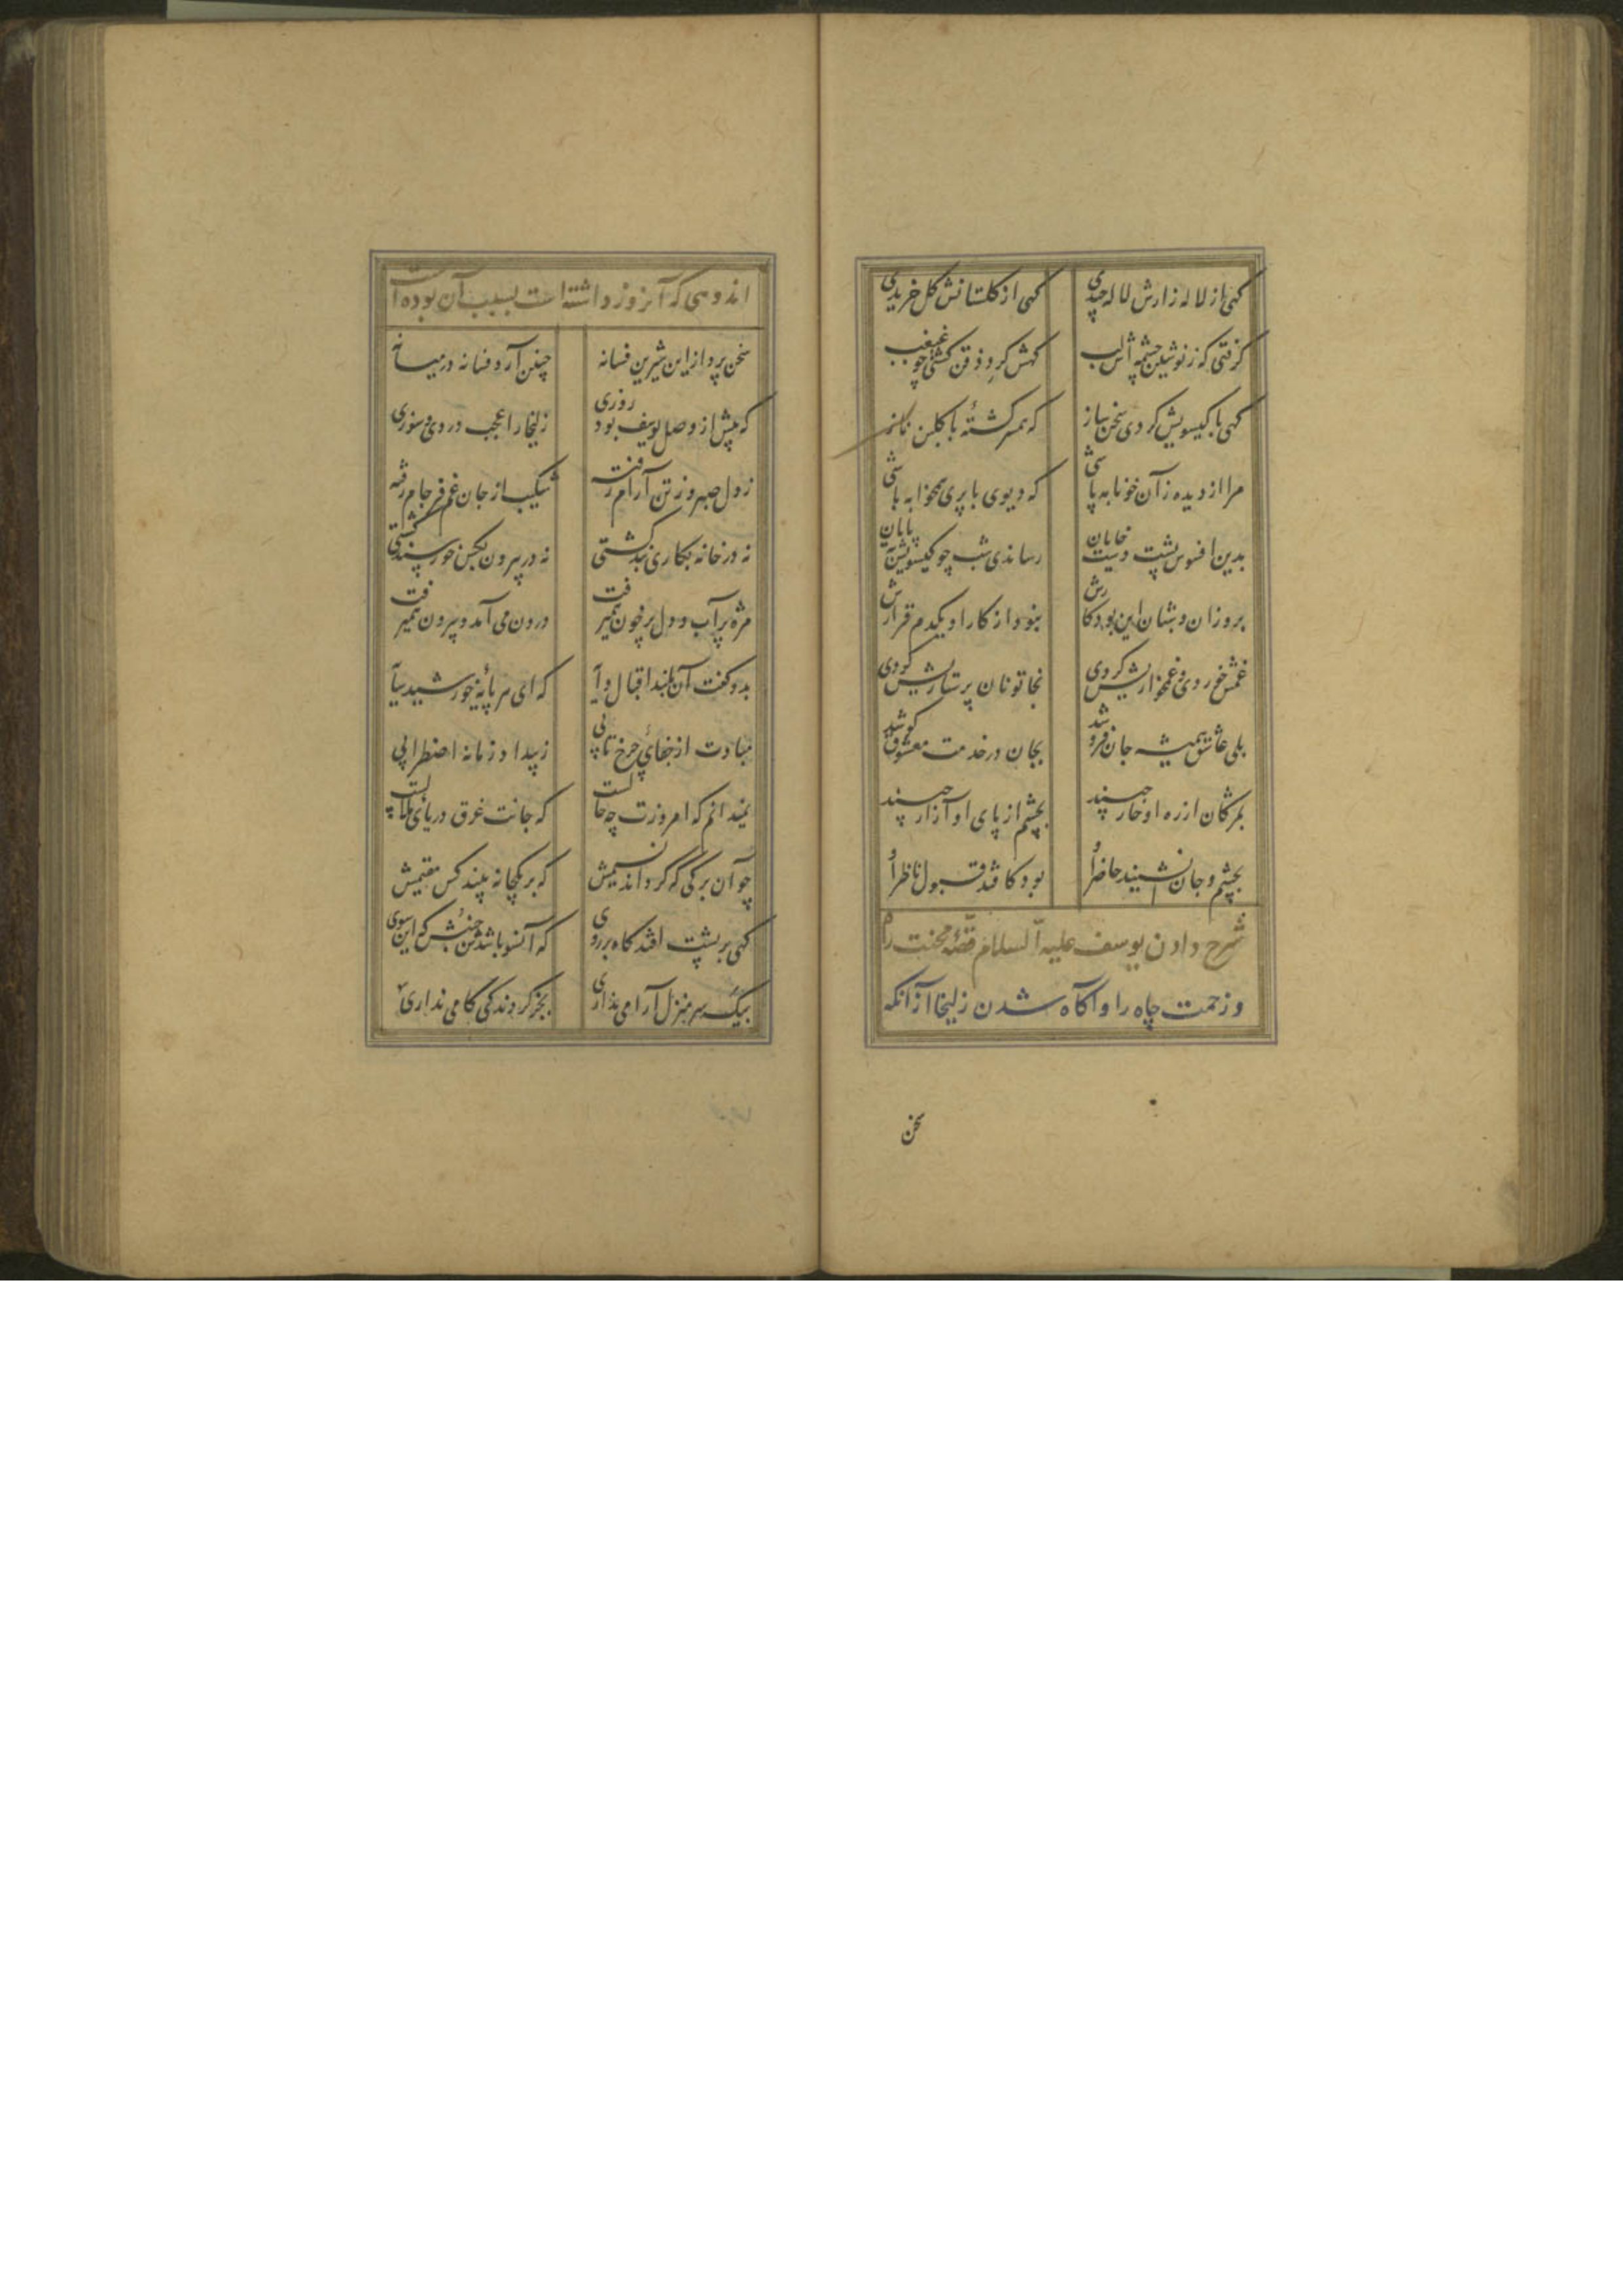 گهی از لاله زارش لاله چیدی گهی از گلستانش گل خریدی
گرفتی که ز نوشین چشمه اش لب گهش گرد ذقن گشتی چو غبغب
گهی با گیسویش کردی سخن ساز که همسر گشتهٔ با گلبن ناز
مرا از دیده زآن خونابه پاشی که دیوی با پری همخوابه باشی
بدین افسوس پشت دست خایان رساندی شب چو گیسویش بپایان
بروزان و شبان این بود کارش نبود از کار او یکدم قرارش
غمش خوردی و غمخواریش کردی بخاتونان پرستاریش کردی
بلی عاشق همیشه جان فروشد بجان در خدمت معشوق کوشد
بمژگان از ره او خار چیند بچشم از پای او آزار چیند
بچشم و جان نشیند حاضر او بود کافتد قبول ناظر او
شرح دادن یوسف علیه السلام قصهٔ محنت راه
و زحمت چاه را و آگاه شدن زلیخا از آنکه
سخن
اندوهی که آنروز داشته است بسبب آن بوده است
سخن پرداز این شیرین فسانه چنین آرد فسانه در میانه
که پیش از وصل یوسف بود روزی زلیخا را عجب دردی و سوزی
ز دل صبر و ز تن آرام رفته شکیب از جان غم فرجام رفته
نه در خانه بکاری بند گشتی نه در بیرون بکس خورسند گشتی
مژه پر آب و دل پر خون همیرفت درون می آمد و بیرون همیرفت
بدو گفت آن بلند اقبال دایه که ای سر پایهٔ خورشید سایه
مبادت از جفای چرخ تابی ز بیداد زمانه اضطرابی
نمیدانم که امروزت چه حالست که جانت غرق دریای ملالست
چو آن برگی که گرداند نسیمش که بر یکجا نه بیند کس مقیمش
گهی بر پشت افتد گاه بر روی که آنسو باشدش جنبش که این سوی
بیک سر منزل آرامی نداری بجز گردندگی کامی نداری